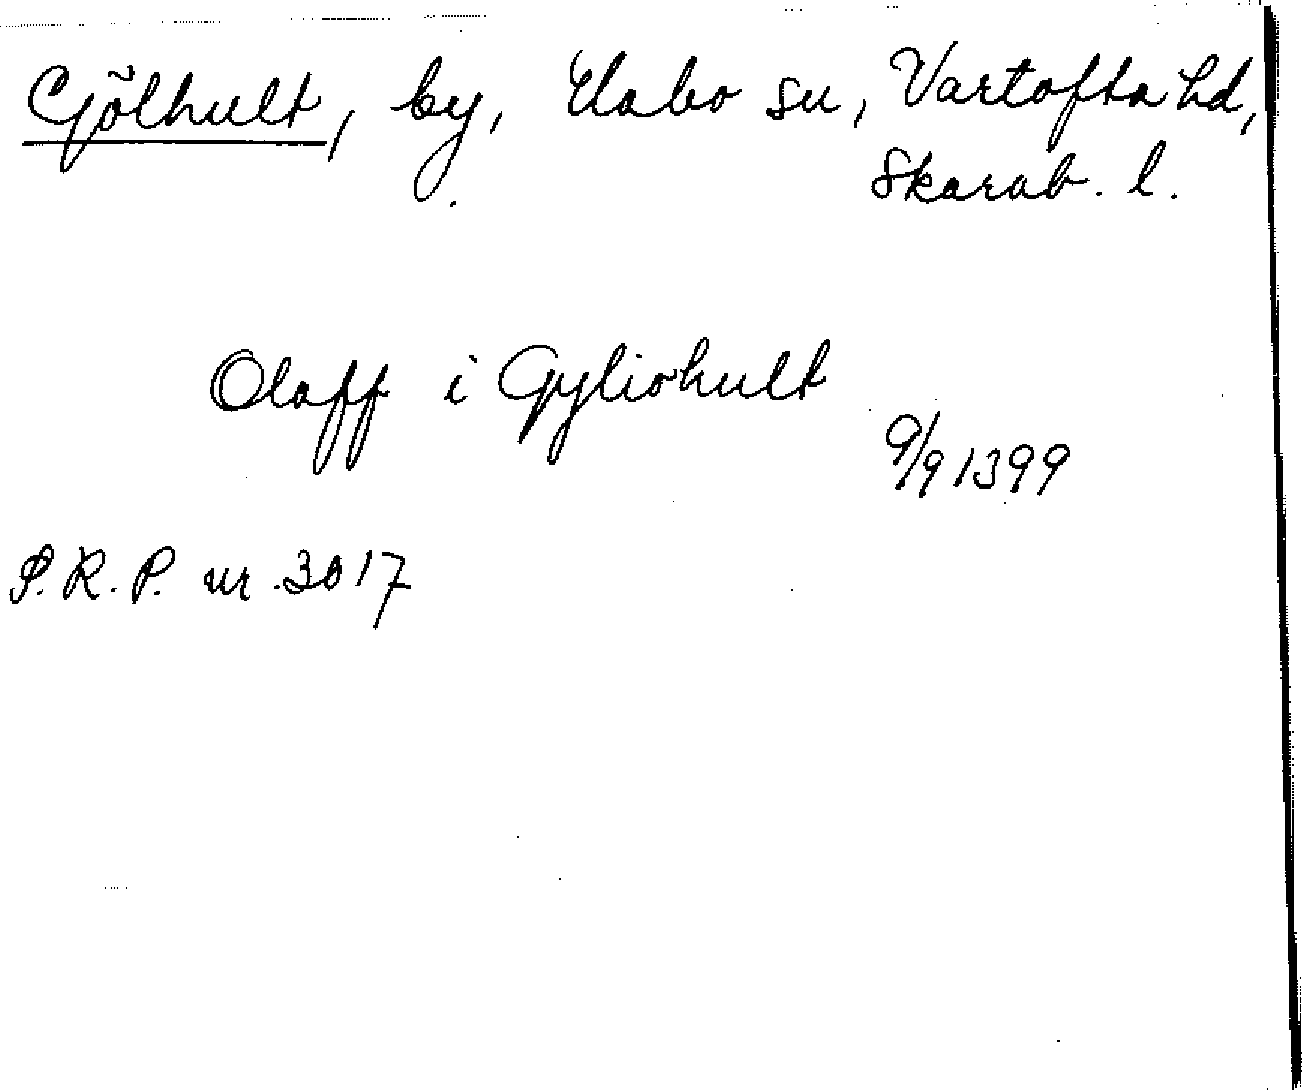 Gjölhult, by, Habo sn, Vartofta hd,
Skarab. l.
Olaff i Gyliohult
9/9 1399
S.R.P. nr. 3017